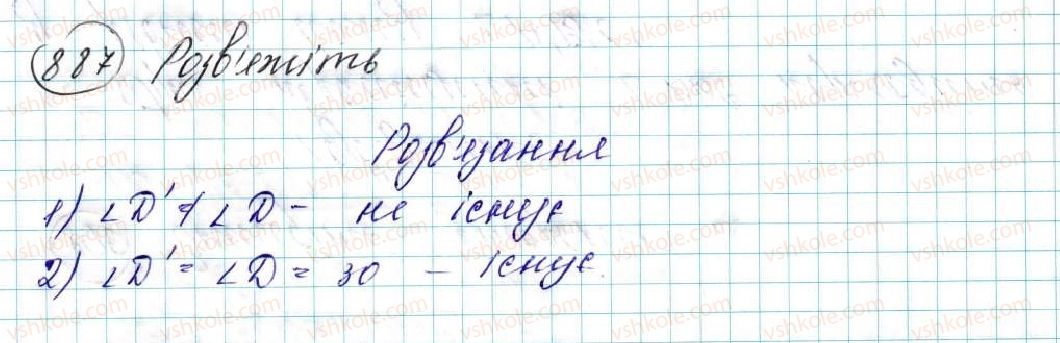 887 Розв'яжіть
Розв'язання
1) ∠D' ≠ ∠D - не існує
2) ∠D' = ∠D = 30 - існує.